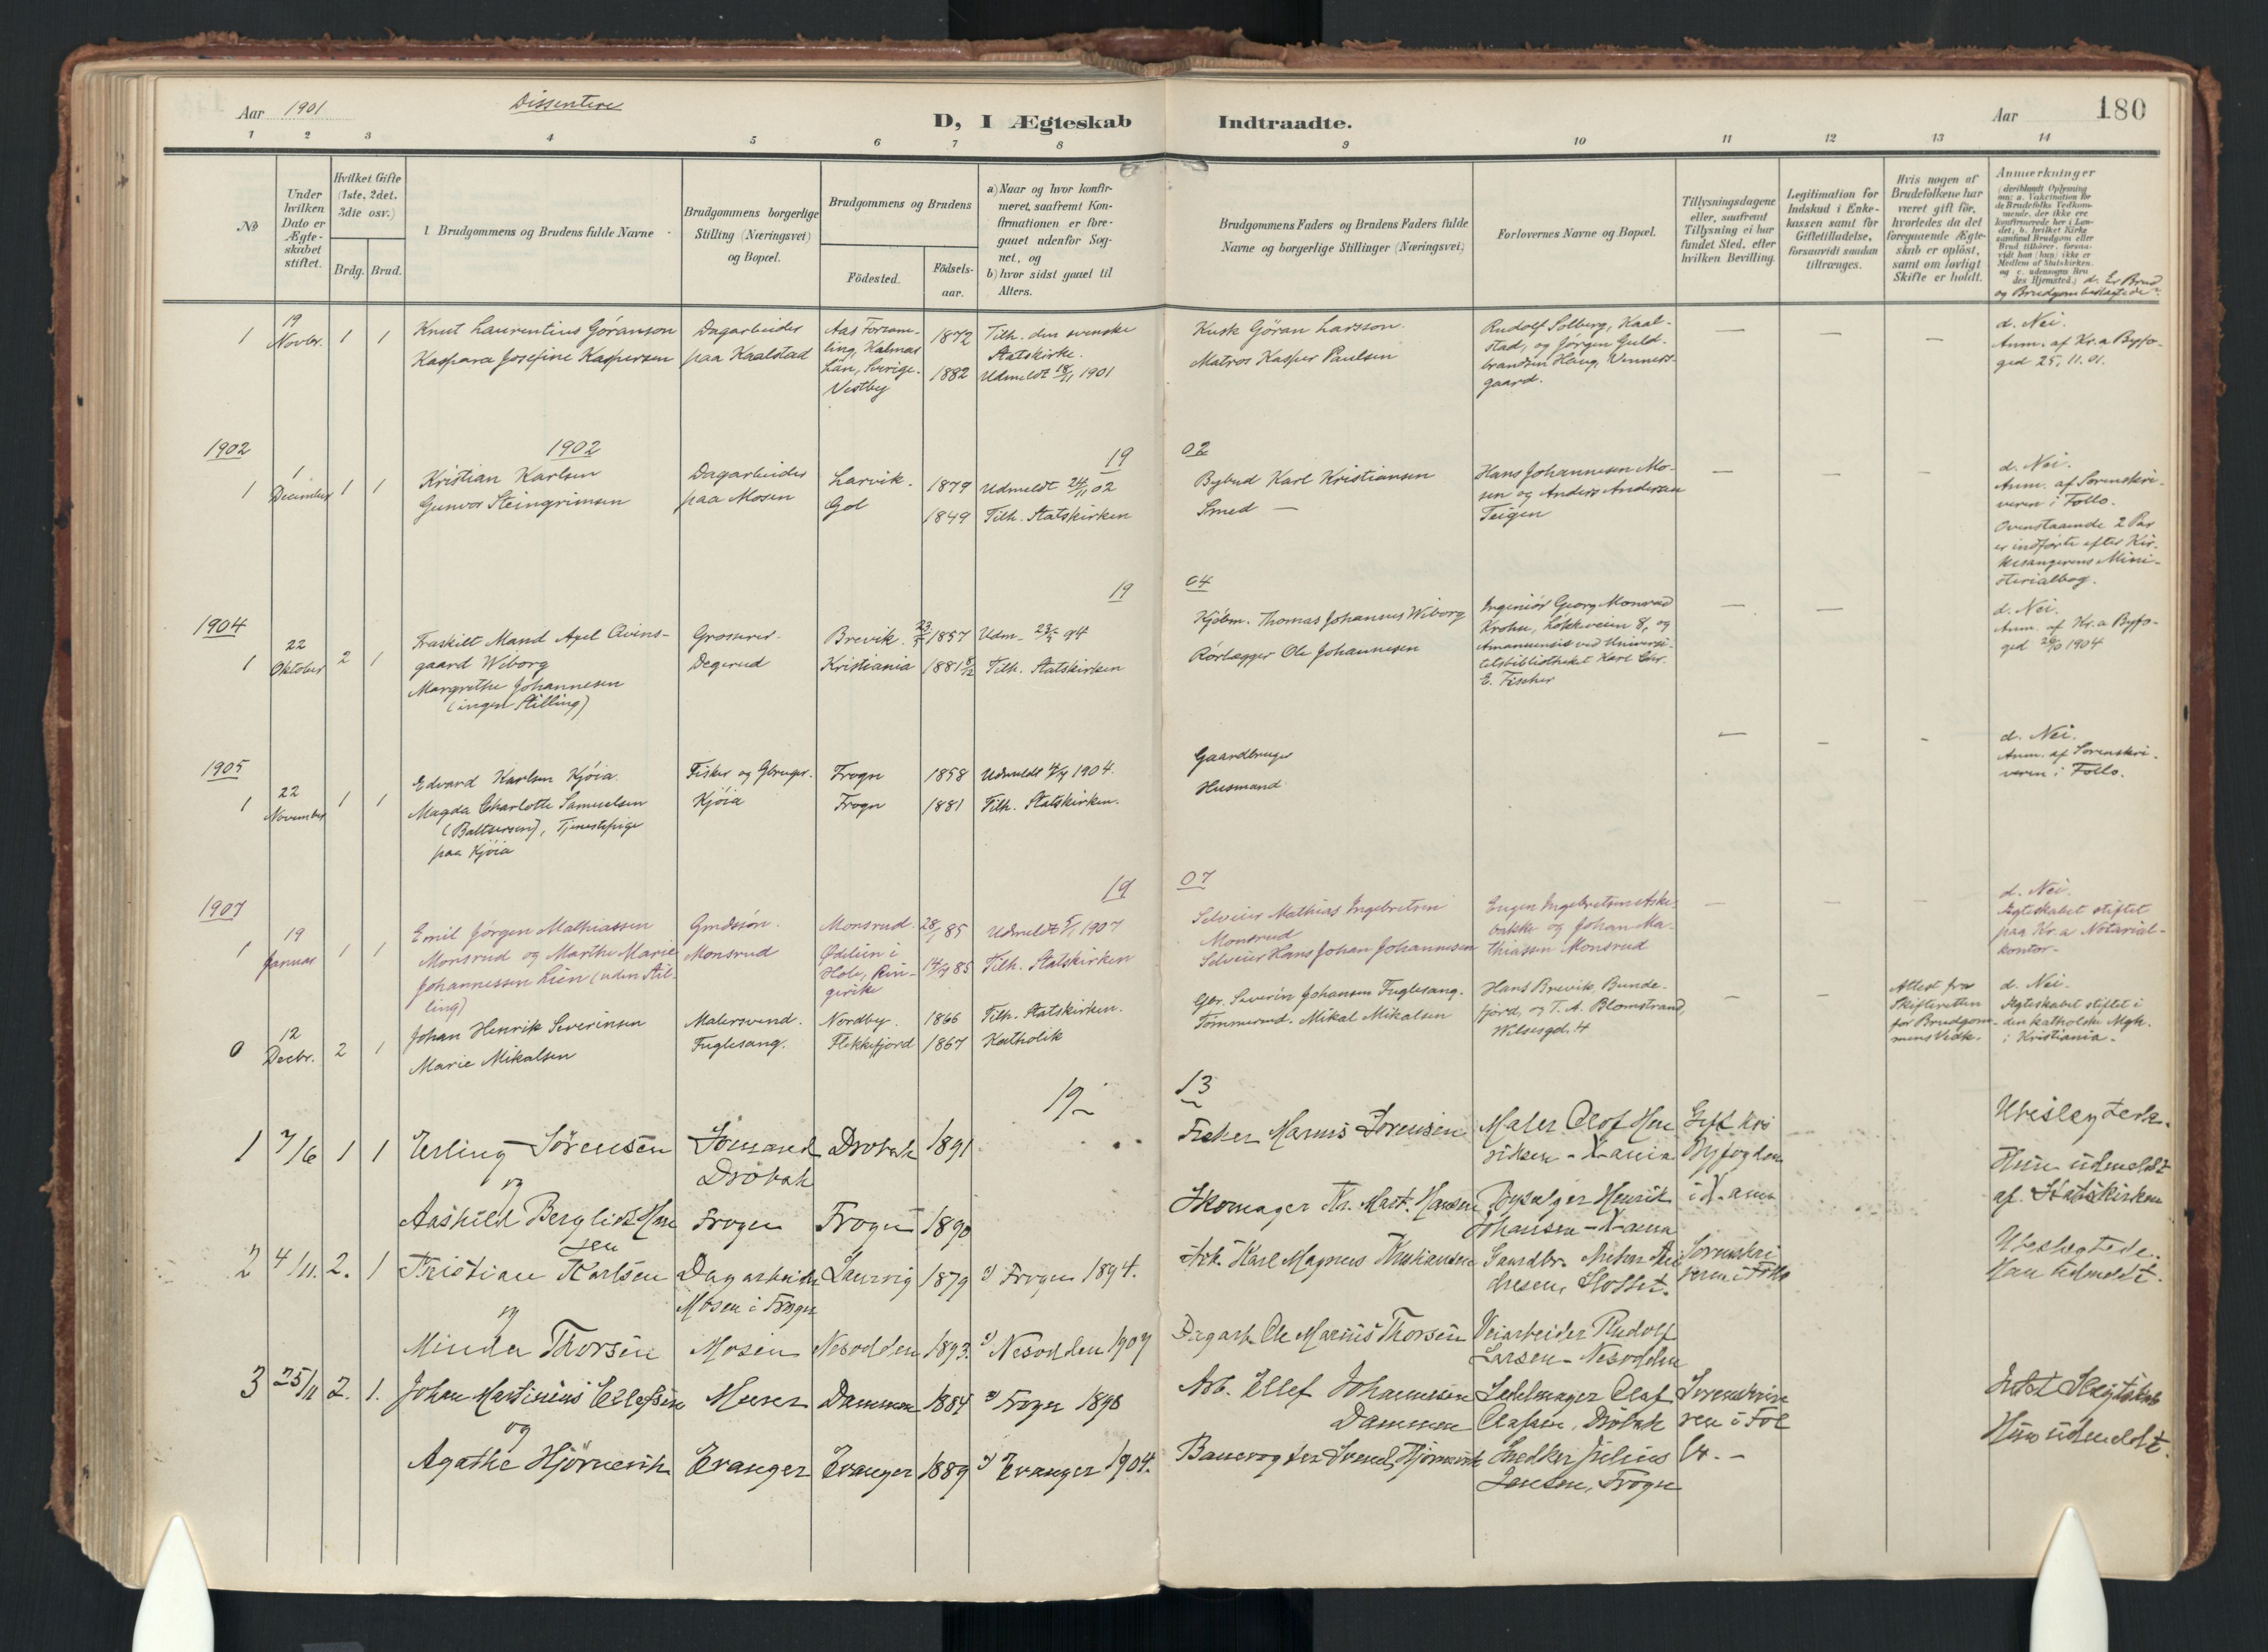 Aar 1901
Dissentere
D, I Ægteskab
Indtraadte.
Aar
180
1 2 3 4 5 6 7 8 9 10 11 12 13 14
No
Under hvilken Dato er Ægteskabet stiftet.
Hvilket Gifte (1ste, 2det, 3die osv.)
Brdg. Brud.
Brudgommens og Brudens fulde Navne
Brudgommens borgerlige Stilling (Næringsvei) og Bopæl.
Brudgommens og Brudens
Födested.
Födsels-aar.
a) Naar og hvor konfirmeret, saafremt Konfirmationen er foregaaet udenfor Sognet, og
b) hvor sidst gaaet til Alters.
Brudgommens Faders og Brudens Faders fulde Navne og borgerlige Stillinger (Næringsvei)
Forlovernes Navne og Bopæl.
Tillysningsdagene eller, saafremt Tillysning ei har fundet Sted, efter hvilken Bevilling.
Legitimation for Indskud i Enkekassen samt for Giftetilladelse, forsaavidt saadan tiltrænges.
Hvis nogen af Brudefolkene har været gift för, hvorledes da det foregaaende Ægteskab er oplöst, samt om lovligt Skifte er holdt.
Anmærkninger
(deriblandt Oplysning om: a. Vakcination for de Brudefolks Vedkommende, der ikke ere konfirmerede her i Landet, b. hvilket Kirkesamfund Brudgom eller Brud tilhörer, forsaavidt han (hun) ikke er Medlem af Statskirken, og c. udensogns Brudes Hjemsted.) d. Er Brud og Brudgom beslægtede?
1 19 Novbr. 1 1
Knut Laurentius Göranson
Kaspara Josefine Kaspersen
Dagarbeider
paa Kaalstad
Aas Forsam-
ling, Kalmar
Län, Sverige.
Vestby
1872
1882
Tilh. den svenske
Statskirke.
Udmeldt 18/11 1901
Kusk Göran Larsson.
Matros Kasper Paulsen
Rudolf Solberg, Kaal-
stad, og Jörgen Guld-
brandsen Haug, Venners-
gaard.
— — —
d. Nei.
Anm. af Kr.a Byfo-
ged 25.11.01.
1902
1902
19
02
1 1 December 1 1
Kristian Karlsen
Gunvor Steingrimsen
Dagarbeider
paa Mosen
Larvik.
Gol
1879
1849
Udmeldt 24/11 02
Tilh. Statskirken
Bybud Karl Kristiansen
Smed —
Hans Johannesen Mo-
sen og Anders Andersen
Teigen
— — —
d. Nei.
Anm. af Sorenskri-
veren i Follo.
Ovenstaaende 2 Par
er indförte efter Kir-
kesangerens Mini-
sterialbog.
19
04
1904
1 22 Oktober 2 1
Fraskilt Mand Axel Qvins-
gaard Wiborg
Margrethe Johannesen
(ingen Stilling)
Grosserer.
Degerud
Brevik.
Kristiania
1857
1881
Udm.
Tilh. Statskirken
Kjöbm. Thomas Johannes Wiborg
Rörlægger Ole Johannesen
Ingeniör Georg Monrad
Krohn, Lökkeveien 8, og
Amanuensis ved Universi-
tetsbibliotheket Karl Chr.
E. Fischer
— —
d. Nei.
Anm. af Kr.a Byfo-
ged 26/10 1904
1905
1 22 November 1 1
Edvard Karlsen Kjöia.
Magda Charlotte Samuelsen
(Baltsersen), Tjenestepige
paa Kjöia
Fisker og Gbruger.
Kjöia
Frogn
Frogn
1858
1881
Udmeldt 1904.
Tilh. Statskirken.
Gaardbruger
Husmand
— — -
d. Nei.
Anm. af Sorenskri-
veren i Follo.
19
07
1907
1 19 Januar 1 1
Emil Jörgen Mathiassen
Monsrud og Marthe Marie
Johannessen Lien (uden Stil-
ling)
Gmdssön.
Monsrud
Monsrud
Ødelien i
Hole, Rin-
gerike
85
85
Udmeldt 5/1 1907
Tilh. Statskirken
Selveier Mathias Ingebretsen
Monsrud
Selveier Hans Johan Johannesen
Eugen Ingebretsen Aske-
bakke og Johan Ma-
thiassen Monsrud
— — -
d. Nei.
Ægteskabet stiftet
paa Kr.a Notarial-
kontor.
0 12 Decbr. 2 1
Johan Henrik Severinsen
Marie Mikalsen
Malersvend.
Fuglesang.
Nordby.
Flekkefjord
1866
1867
Tilh. Statskirken.
Katholik
Gbr. Severin Johansen Fuglesang.
Tömmermd. Mikal Mikalsen
Hans Brevik, Bunde-
fjord, og T. A. Blomstrand,
Wilsesgd. 4
- —
Attest fra
Skifteretten
for Brudgom-
mens Vedk.
d. Nei.
Ægteskabet stiftet i
den katholske Mgh.
i Kristiania.
19
13
1 7/6 1 1
Erling Sörensen
og
Aashild Bergliot Han
sen
Sömand
Dröbak
Frogn
Drobak
Frogn
1891
1890
Fisker Marius Sörensen
Skomager Kr. Mart. Hansen
Maler Olof Hen
riksen - X-ania
Henrik
Johansen - X-ania
Gift hos
Byfogden
i X-ania
Ubeslegtede.
Hun udmeldt
af Statskirken
2 4/11. 2. 1
Kristian Karlsen
og
Minda Thorsen
Dagarbeider
Mosen i Frogn
Mosen
Laurvig
Nesodden
1879
1893.
Frogn 1894.
Nesodden 1907
Arb. Karl Magnus Kristiansen
Dagarb. Ole Marius Thorsen
Gaardbr. Anton An
dresen, Slottet.
Veiarbeider Rudolf
Larsen - Nesodden
Sorenskri
veren i Follo
Ubeslegtede.
Han udmeldt.
3 25/11 2. 1.
Johan Martinius Ellefsen
og
Agathe Hjörnevik
Murer
Evanger
Dammen
Evanger
1884
1889
Frogn 1898
Evanger 1904.
Arb. Ellef Johannesen
Dammen
Banevogter Svend Hjörnevik
Sadelmager Olaf
Olafsen, Dröbak
Snedker Julius
Jensen, Frogn
Sorenskrive
ren i Fol
lo. -
Intet Slegtskab
Hun udmeldt.